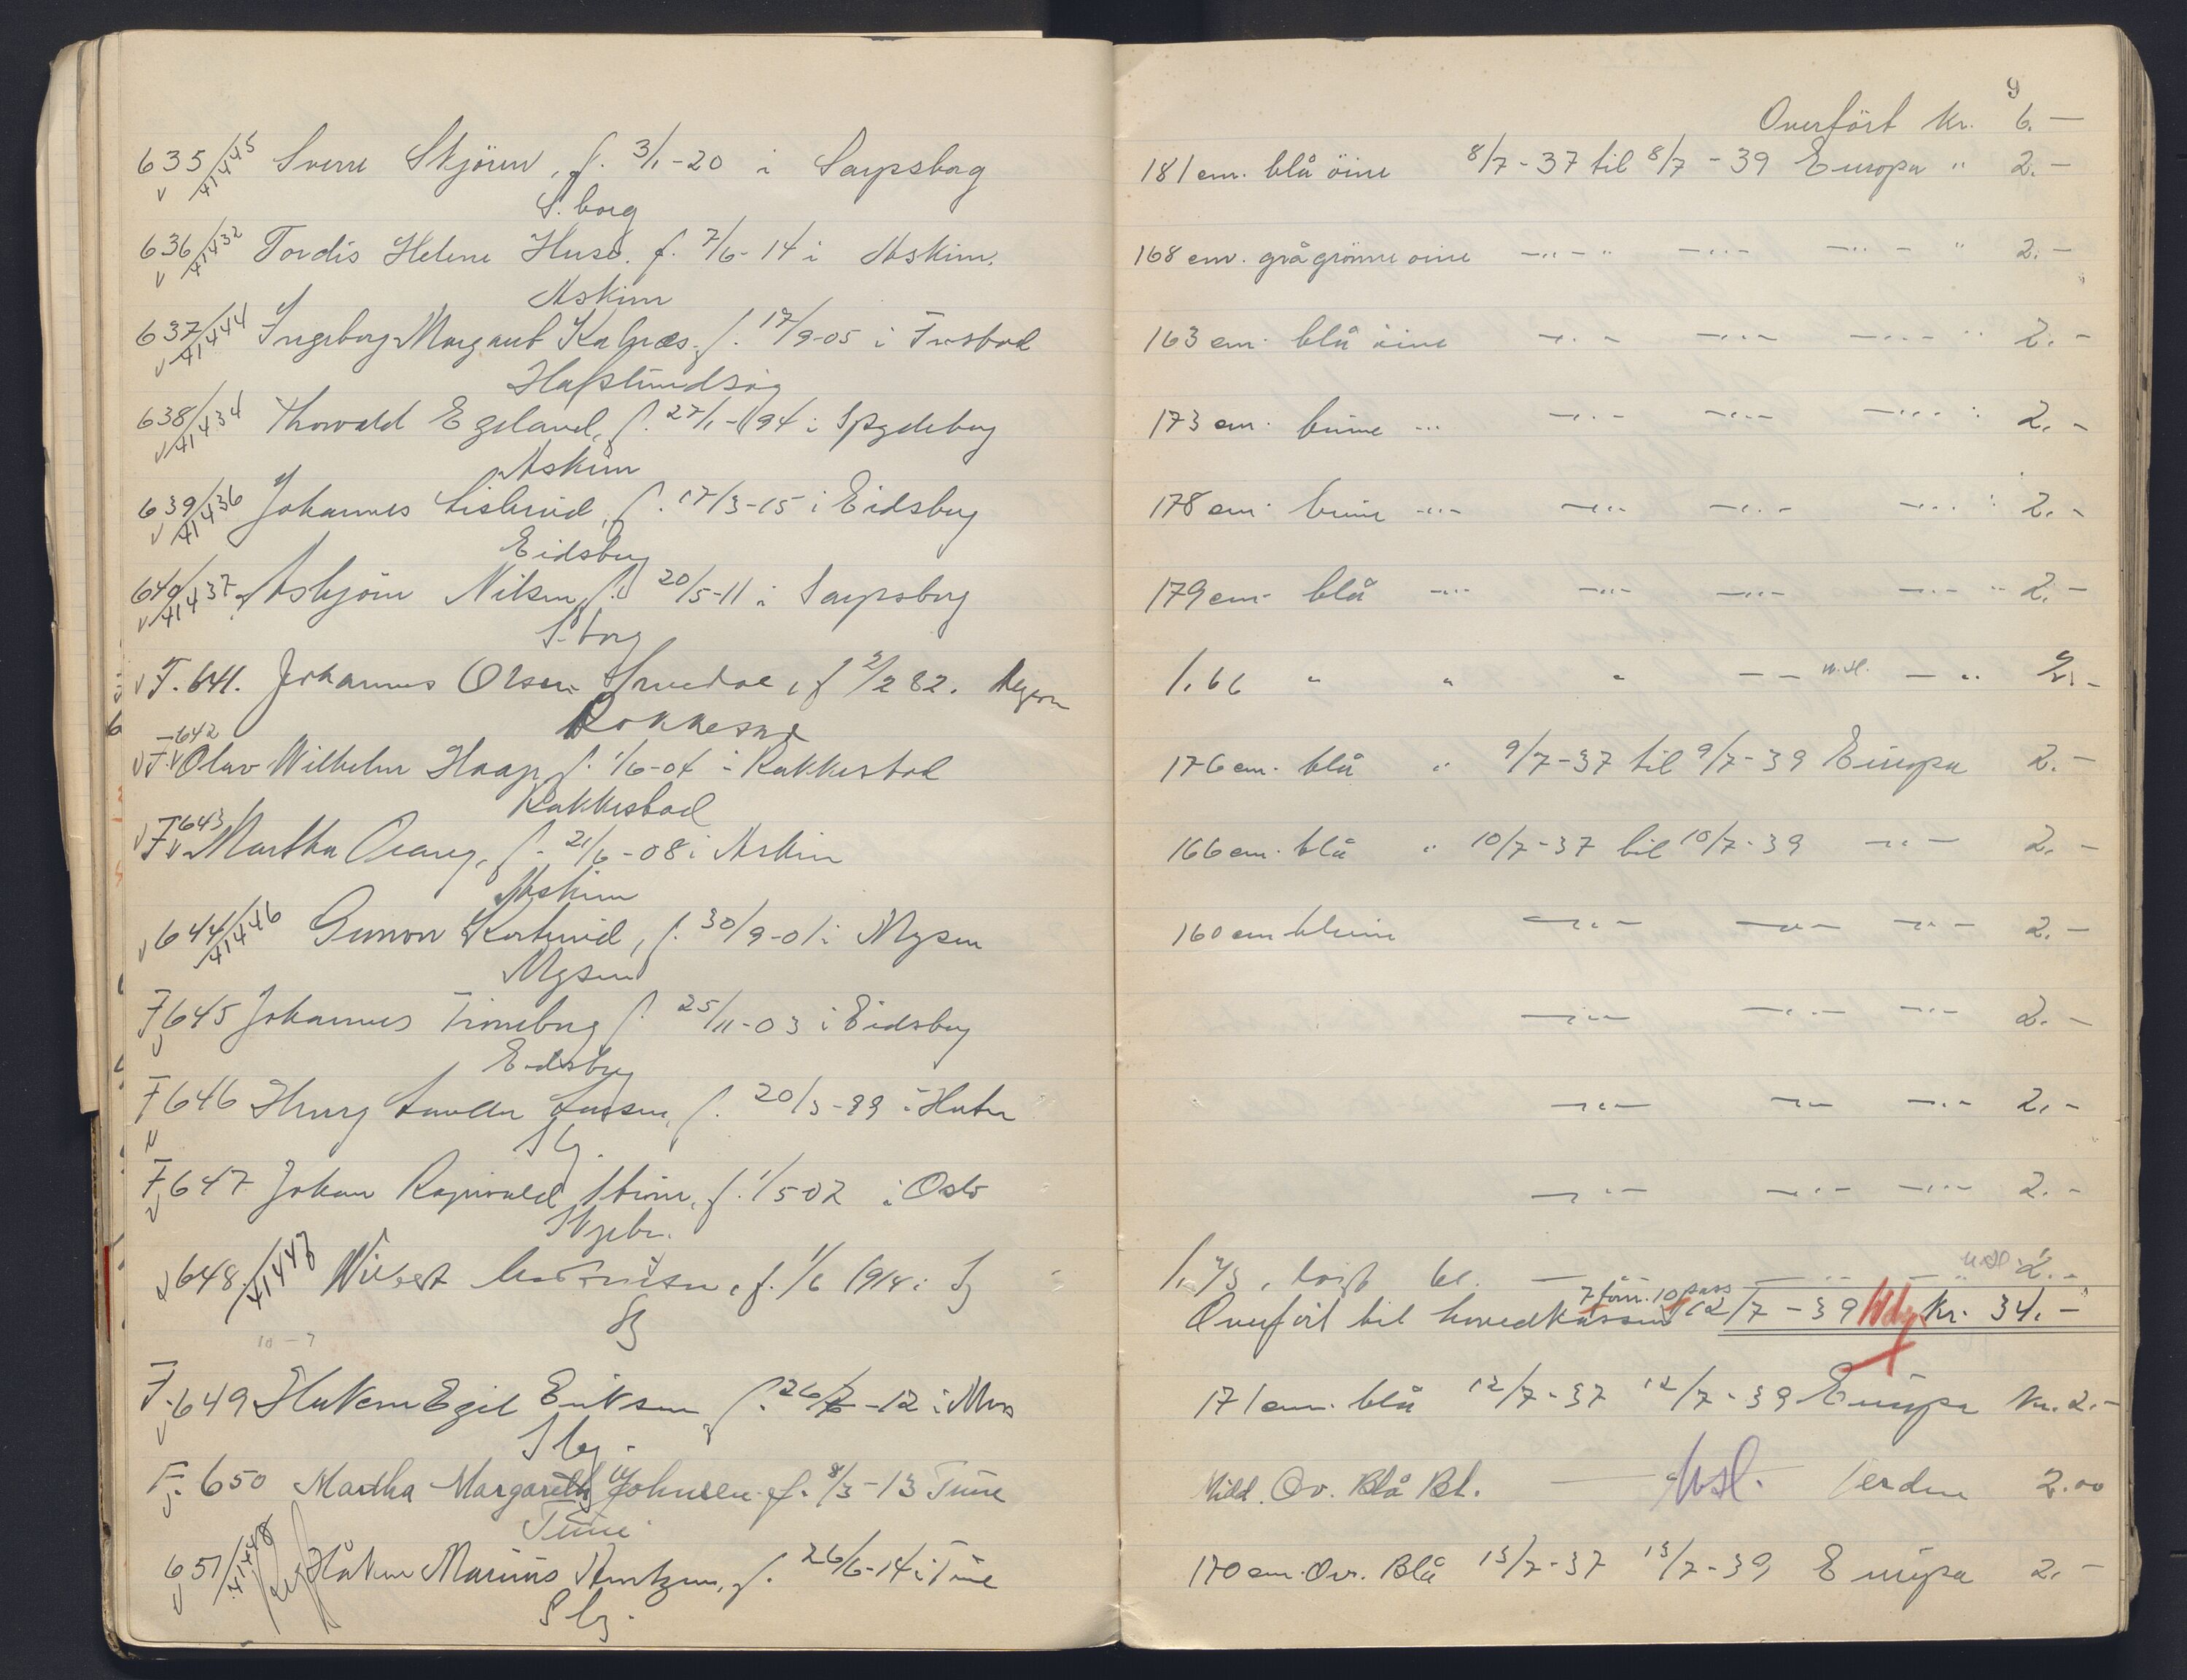 9
Overfört kr. 6.-
635/41445 Sverre Skjören, f. 3/1-20 i Sarpsborg 181 cm. blå öine 8/7-37 til 8/7-39 Europa " 2.-
S.borg
636/41432 Tordis Helene Huse. f. 7/6-14 i Askim. 168 cm. grågrönne öine -"- " -"- -"- " 2.-
Askim
637/41444 Ingeborg Margaret Kalnæs, f. 17/9-05 i Trøstad 163 cm. blå öine -"- -"- -"- " 2.-
Hafslundsøy
638/41434 Thorvald Egeland, f. 27/1-94 i Spydeberg 173 cm. brune -"- -"- -"- -"- " 2.-
Askim
639/41436 Johannes Lislerud, f. 17/3-15 i Eidsberg 178 cm. brune -"- -"- -"- -"- " 2.-
Eidsberg
640/41437 Asbjörn Nilsen, f. 20/5-11 i Sarpsborg 179 cm. blå -"- -"- -"- -"- " 2.-
S.borg
F. 641. Johannes Olsen, f 2/2 82. Degern 1.66 " " " - - u.sl. - " 2.-
Rakkestad
F. 642 Olav Wilhelm Haag, f. 1/6-04 i Rakkestad 176 cm. blå " 9/7-37 til 9/7-39 Europa 2.-
Rakkestad
F. 643 Martha f. 21/6-08 i Askim 166 cm. blå " 10/7-37 til 10/7-39 -"- 2.-
Askim
644/41446 Gunvor, f. 30/9-01 i Mysen 160 cm -"- -"- -"- 2.-
Mysen
F 645 Johannes Troneberg f. 25/11-03 i Eidsberg -"- -"- -"- 2.-
Eidsberg
F 646 Larsen, f. 20/3-99 i -"- -"- -"- 2.-
Sbg.
F. 647 Johan Ragnvald, f. 1/5 02 i Oslo -"- -"- -"- 2.-
Skjeberg.
648./41447, f. 1/6 1914 i Sbg 1.73, bl. - -"- -"- u.sl. 2.-
Sbg
7 forn. 10 pass
Overfört til hovedkassen 12/7-39 kr. 34.-
10-7
F. 649 Haken Egil Eriksen f. 26/7-12 i Moss 171 cm. blå 12/7-37 12/7-39 Europa kr. 2.-
Sbg.
F. 650 Martha Margareth Johnsen f. 8/3-13 Tune Midd. Ov. Blå Bl. - " - Usl. Verden 2.00
Tune
651/41448 Håkon Marius f. 26/6-14 i Tune 170 cm. Ov. Blå 13/7-37 13/7-39 Europa 2.-
Sbg.